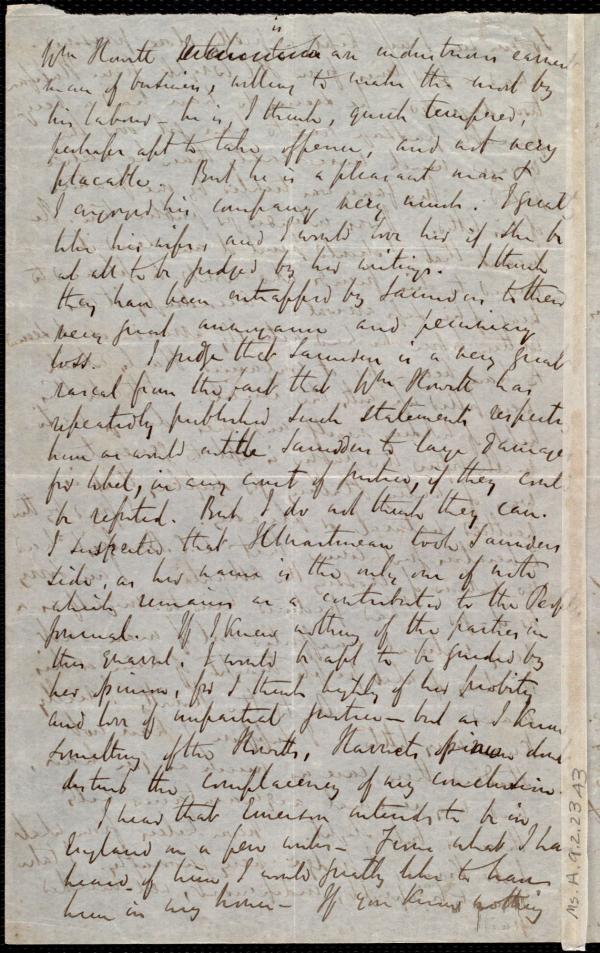 is
Wm Howitt an industrious earnest
man of business, willing to make the most by
his labour - he is, I think, quick tempered,
perhaps apt to take offence, and not very
placable. But he is a pleasant man &
I enjoyed his company very much. I great
like his wife, and I would love her if she be
at all to be judged by her writings. I think
they have been entrapped by Saunders to their
very great annoyance and pecuniary
loss. I judge that Saunders is a very great
rascal from the fact that Wm Howitt has
repeatedly published such statements respect
him as would entitle Saunders to large damage
for libel, in any court of justice, if they could
be refuted. But I do not think they can.
I suspected that H. Martineau took Saunders
side, as her name is the only one of note
which remains as a contributor to the Peop
Journal. If I knew nothing of the parties in
this quarrel, I would be apt to be guided by
her opinion, for I think highly of her probity
and love of impartial justice - but as I know
something of the Howitts, Harriets opinion dont
disturb the complacency of my conclusion.
I hear that Emerson intends to be in
England in a few weeks - From what I ha
heard of him I would greatly like to have
him in my house - If you know nothing
Ms. A. 9. 2. 23 A3